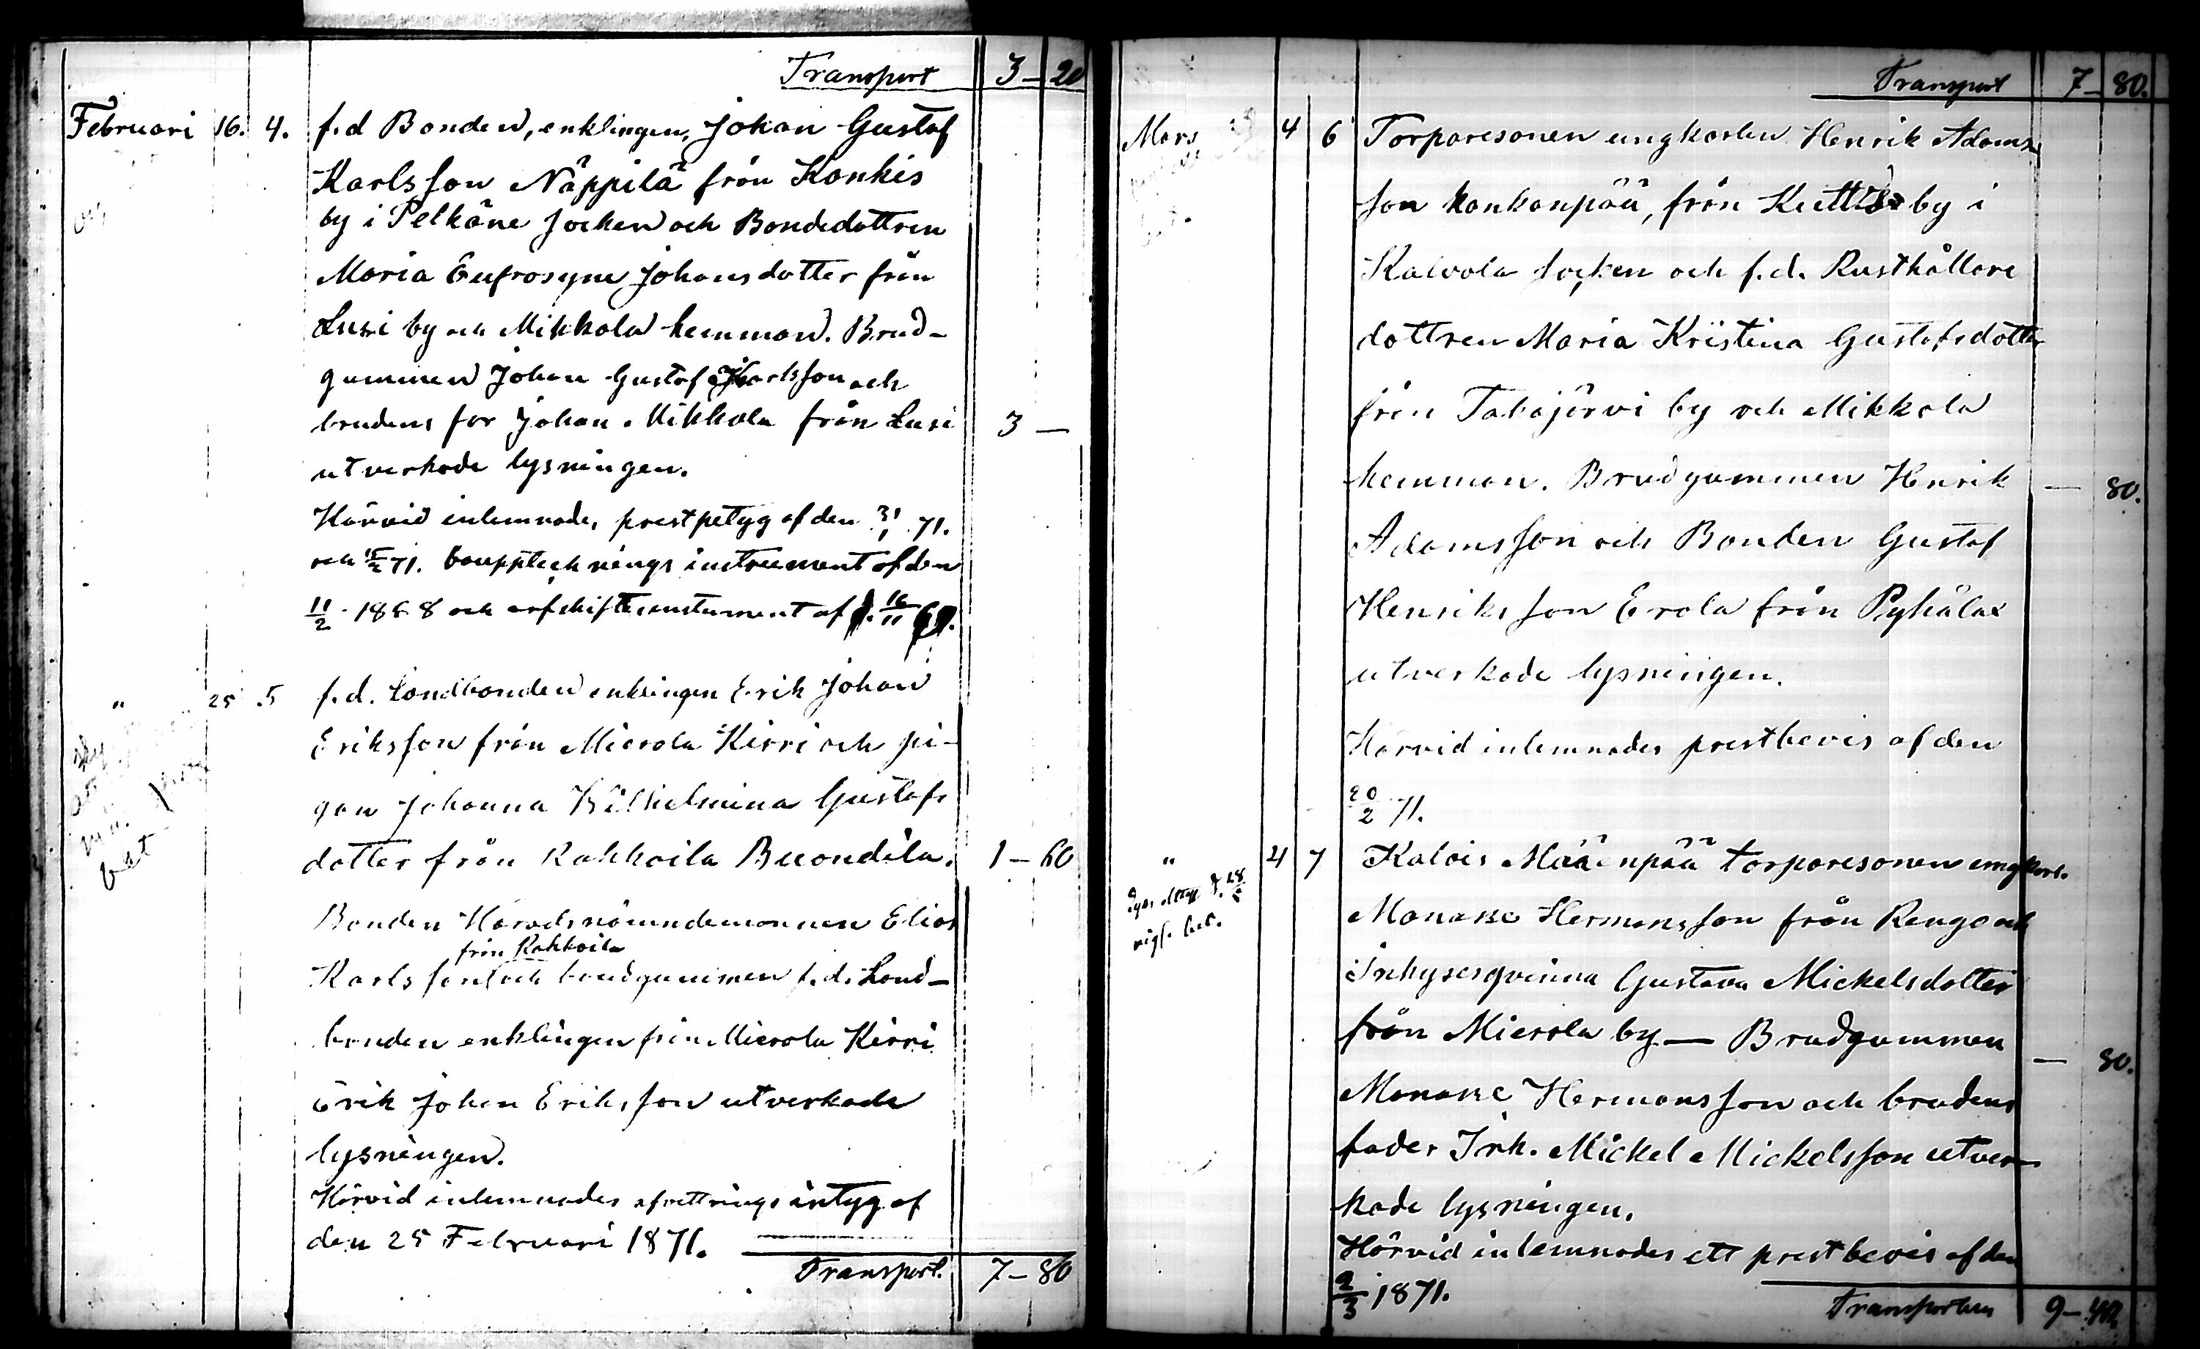 Transport 3 – 20
Februari 16. 4. f.d Bonden, enklingen, Johan Gustaf
Karlsson Näppilä från Konkis
by i Pelkäne Socken och Bondedottren
Maria Eufrosyne Johansdotter från
Lusi by och Mikkola hemman. Brud-
gummen Johan Gustaf Karlsson och
brudens far Johan Mikkola från Lusi 3 –
utverkade lysningen.
Härvid inlemnades prestbetyg af den 31/1 71.
och 15/2 71. boupptecknings instrument af den
11/2 1868 och arfskiftesinstument af d. 16/11 69.
" 25 5 f.d. Landbonden enklingen Erik Johan
Eriksson från Mierola Kirri och pi-
gan Johanna Wilhelmina Gustafs
dotter från Rahkoila Buondila. 1 – 60
Bonden Häradsnämndemannen Elias
från Rahkoila
Karlsson och brudgummen f.d. Land-
bonden enklingen från Mierola Kirri
Erik Johan Eriksson utverkade
lysningen.
Härvid inlemnades afvittrings intyg af
den 25 Februari 1871.
Transport. 7 – 80
Transport 7 – 80.
Mars 4 6 Torparesonen ungkarlen Henrik Adams
son kankanpää, från by i
Kalvola Socken och f.d. Rusthållare
dottren Maria Kristina Gustafsdotter
från Takajärvi by och Mikkola
hemman. Brudgummen Henrik – 80.
Adamsson och Bonden Gustaf
Henriksson Erola från Pyhälax
utverkade lysningen.
Härvid inlemnades prestbevis af den
20/2 71.
" 4 7 Kalois Määnpää torparesonen ungkarl.
Manasse Hermansson från Rengo och
Inhysesqvinna Gustava Mickelsdotter
från Mierola by — Brudgummen
– 80.
Manasse Hermansson och brudens
fader Inh. Mickel Mickelsson utver-
kade lysningen.
Härvid inlemnades ett prestbevis af den
2/3 1871.
Transporteras 9 – 40